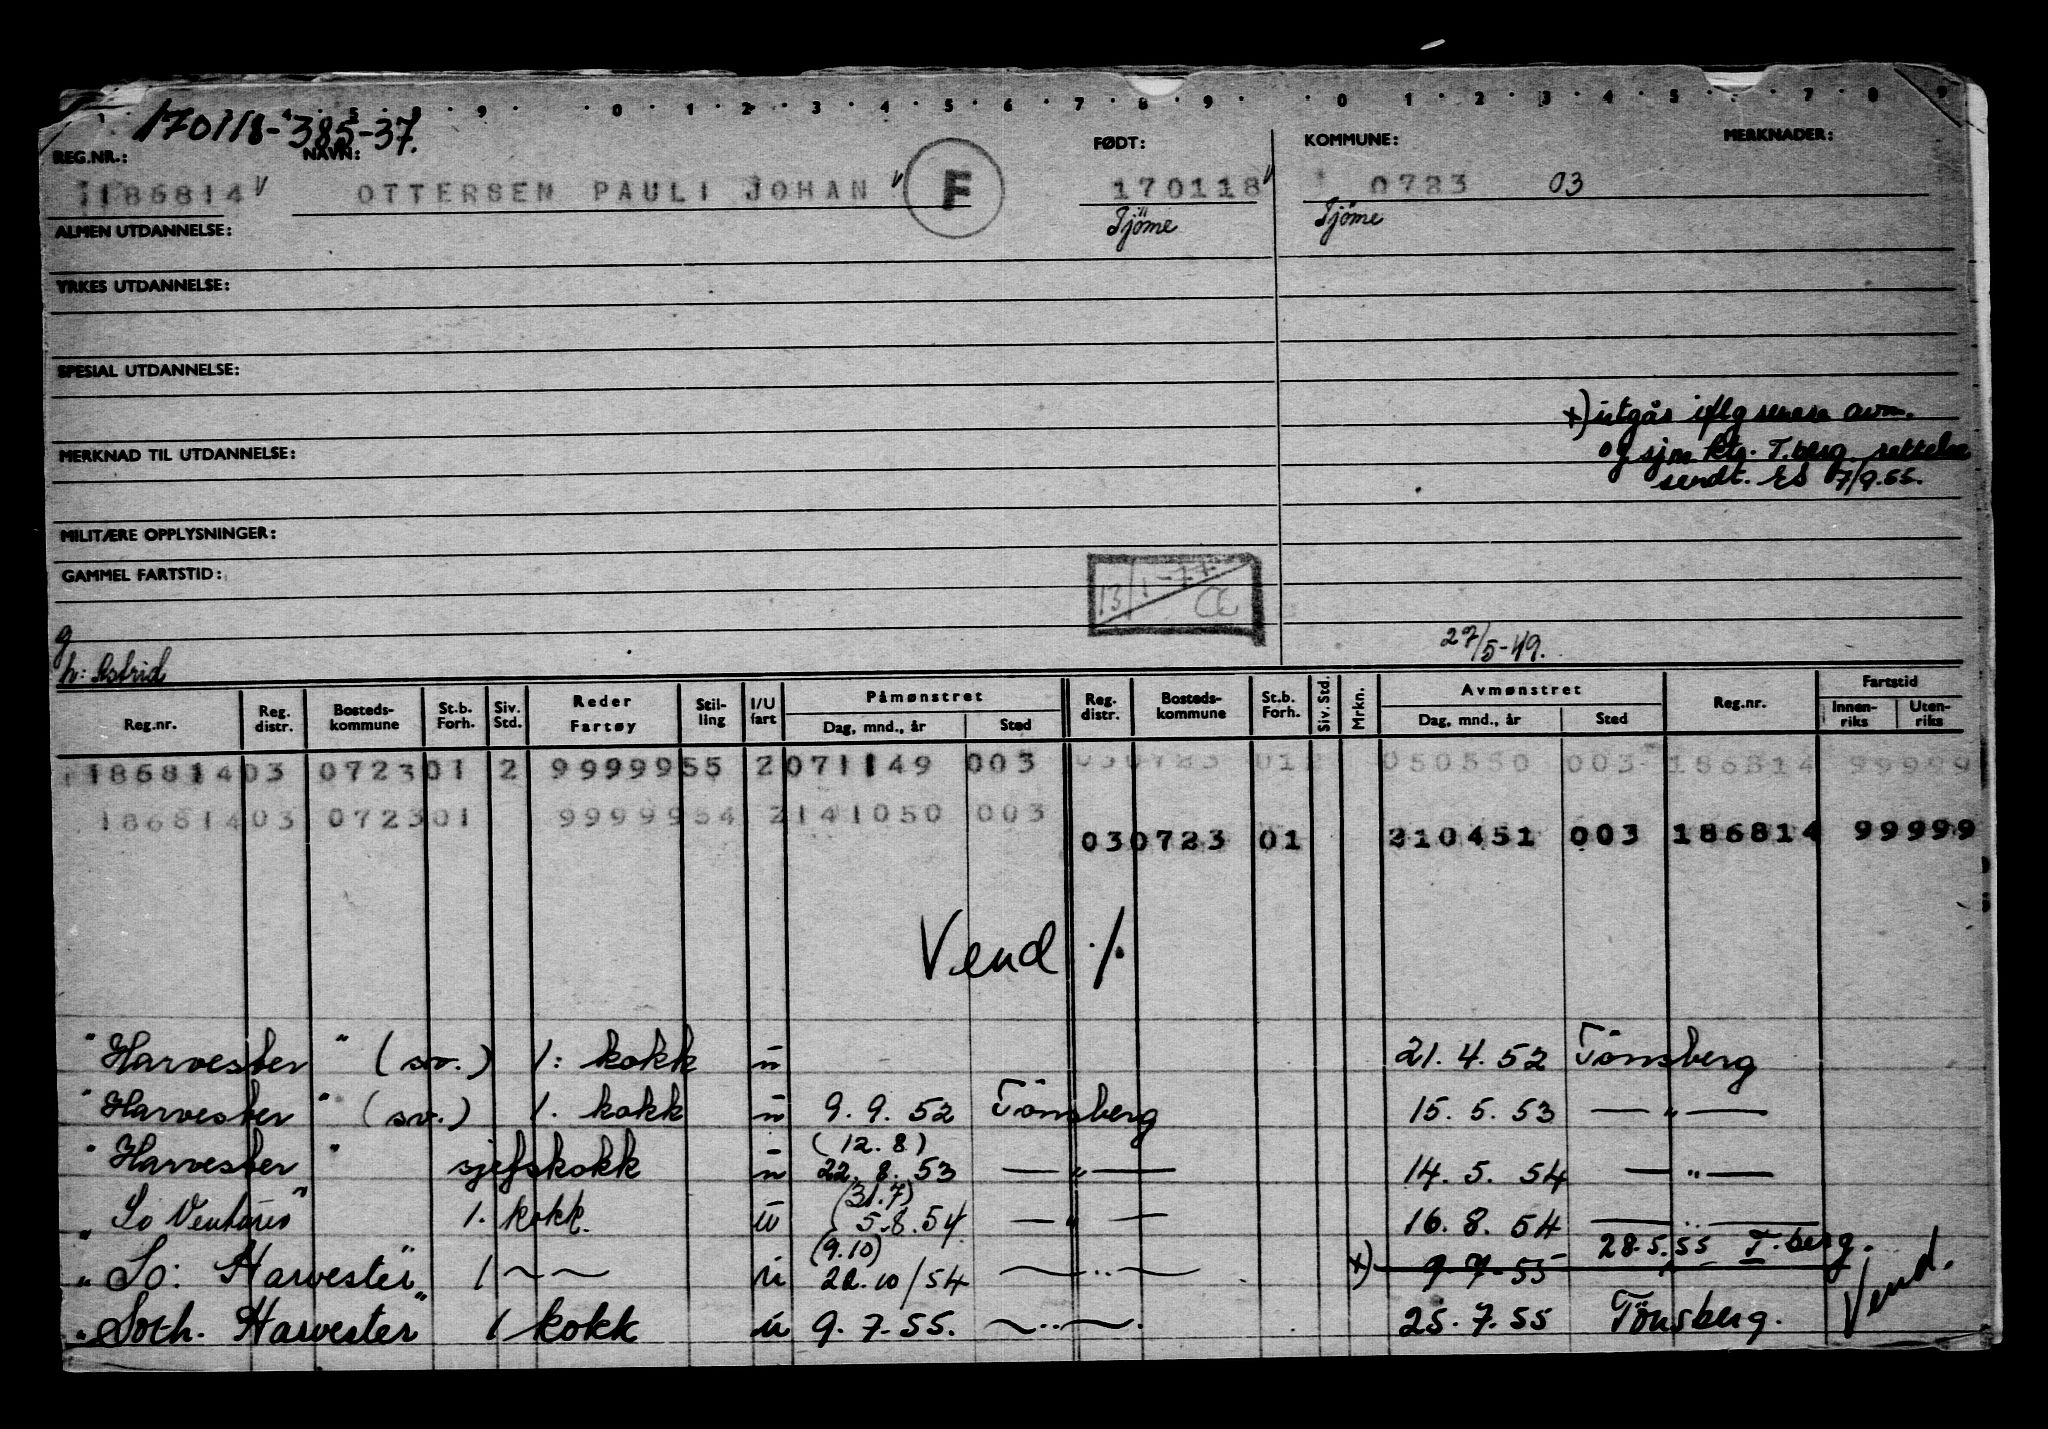 170118-385-37.
REG.NR.: NAVN: FØDT: KOMMUNE: MERKNADER:
186814 OTTERSEN PAULI JOHAN F 170118 0723 03
ALMEN UTDANNELSE: Tjöme Tjöme
YRKES UTDANNELSE:
SPESIAL UTDANNELSE:
x) utgår iflg senere avm.
MERKNAD TIL UTDANNELSE: og sjm ktr. T.berg rettelse
sendt. ES 7/9.55.
MILITÆRE OPPLYSNINGER:
GAMMEL FARTSTID: 13/1-77
g 27/5-49.
h: Astrid
Reg.nr. Reg. distr. Bosteds-kommune St.b. Forh. Siv. Std. Reder Fartøy Stil-ling I/U fart Påmønstret Dag, mnd., år Sted Reg. distr. Bosteds-kommune St.b. Forh. Siv. Std. Mrkn. Avmønstret Dag, mnd., år Sted Reg.nr. Fartstid Innen-riks Uten-riks
186814 03 0723 01 2 99999 55 2 071149 003 030723 01 2 050550 003 186814 99999
186814 03 0723 01 99999 54 2 141050 003
030723 01 210451 003 186814 99999
Vend ./.
"Harvester" (sv.) 1. kokk u 21.4.52 Tönsberg
"Harvester" (sv.) 1. kokk u 9.9.52 Tönsberg 15.5.53 — " —
(12.8)
"Harvester" sjefskokk u 22.8.53 — " — 14.5.54 — " —
(31.7)
"So Venturer" 1. kokk. u 5.8.54 — " — 16.8.54 — " —
(9.10) 28.5.55 T.berg.
"So: Harvester" 1 ~ ~ u 22.10/54 — " — x) 9-7-55 Vend.
"Soth. Harvester" 1 kokk u 9.7.55. — " — 25.7.55 Tönsberg.